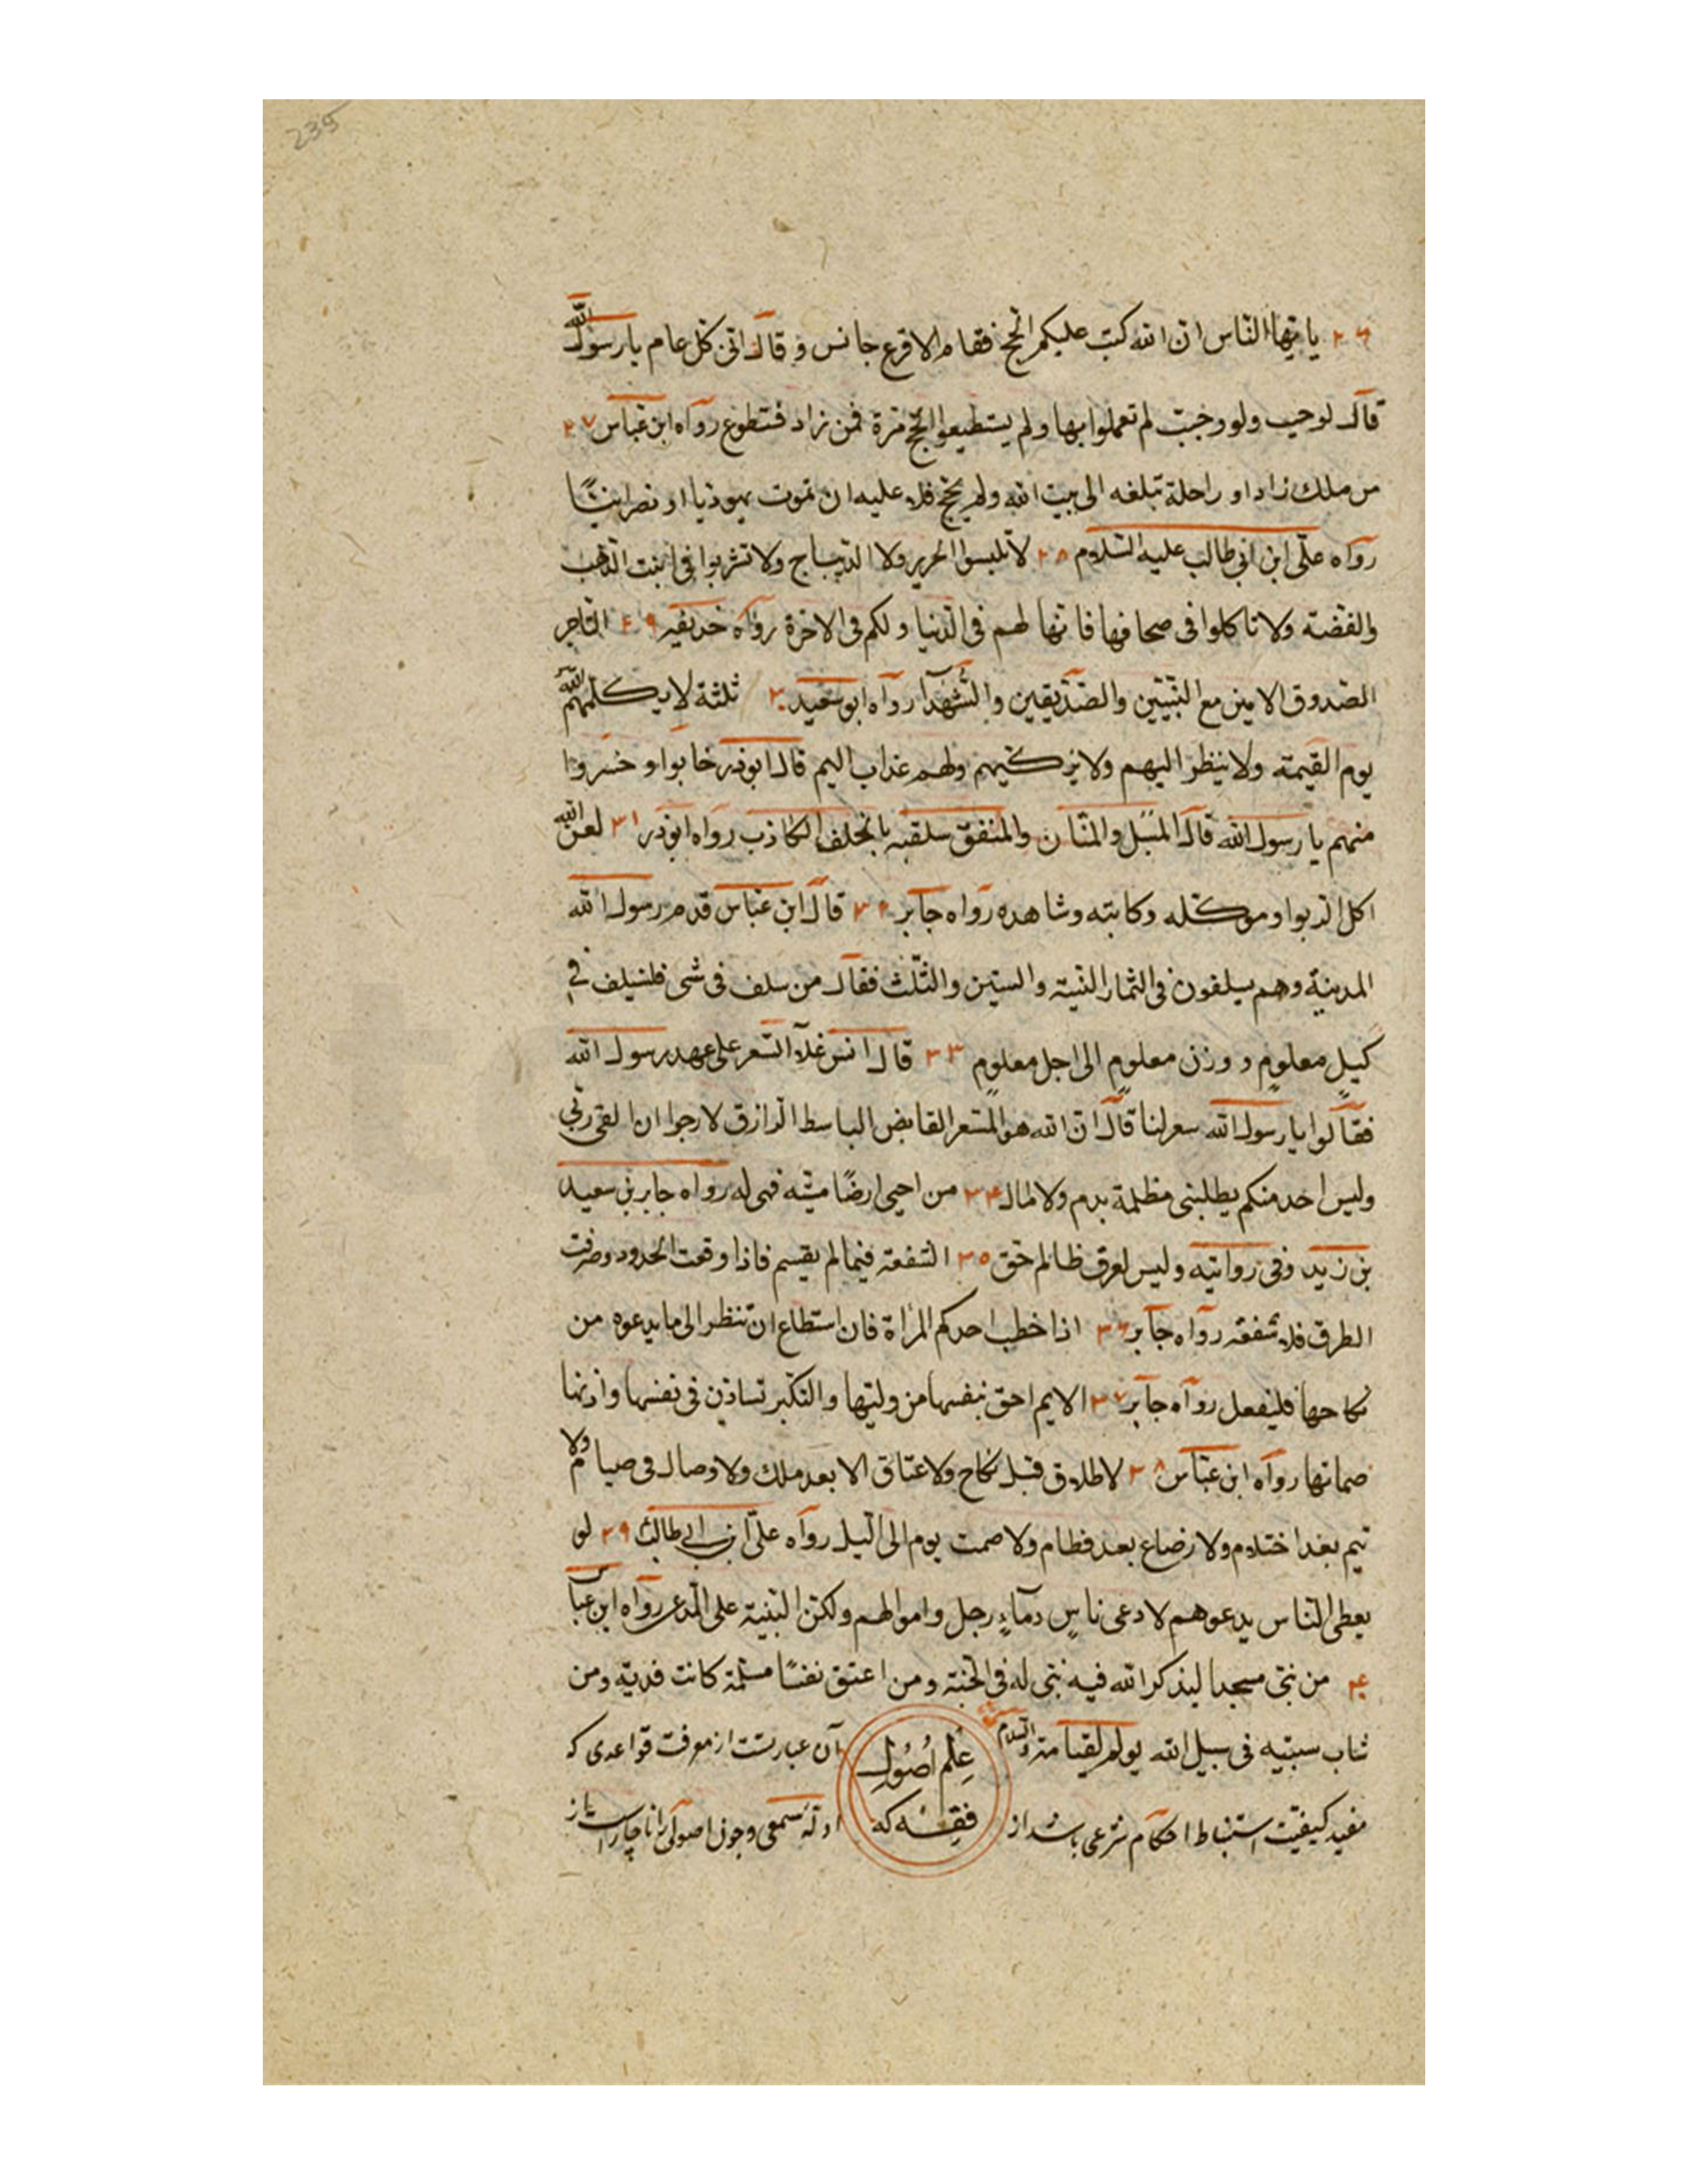 235
۲۶ یا ایها الناس ان الله کتب علیکم الحج فقام الاقرع حابس و قال انی کل عام یا رسول الله
قال لو حیب ولو وجبت لم تعملوا بها ولم یستطیعوا الحج مرة فمن زاد فتطوع رواه ابن عباس ۲۷
من ملک زادا و راحلة تبلغه الی بیت الله ولم یحج فلا علیه ان تموت یهودیا او نصرانیًا
رواه علی ابن ابی طالب علیه السلام ۲۸ لا تلبسوا الحریر ولا الدیباج ولا تشربوا فی انیت الذهب
والفضته ولا تاکلوا فی صحافها فانها لهم فی الدنیا ولکم فی الاخرة رواه حذیفه ۲۹ التاجر
الصدوق الامین مع النبیین والصدیقین والشهدآ رواه ابو سعید ۳۰ ثلثة لا یکلمهم الله
یوم القیمته ولا ینظر الیهم ولا یزکیهم ولهم عذاب الیم قال ابوذر خابوا و خسروا
منهم یا رسول الله قال المسبل والمنان والمنفق سلقبه بالحلف الکاذب رواه ابوذر ۳۱ لعن الله
اکل الربوا و موکله وکاتبه وشاهده رواه جابر ۳۲ قال ابن عباس قدم رسول الله
المدینة وهم سیلفون فی الثمار السنیته والستین والثلث فقال من سلف فی شی فلسیلف فی
کیلٍ معلومٍ و وزن معلومٍ الی اجل معلومٍ ۳۳ قال انس غلا السعر علی عهد رسول الله
فقالوا یا رسول الله سعر لنا قال ان الله هو المسعر القابض الباسط الرازق لارجوا ان القی ربی
ولیس احد منکم یطلبنی مظلمة بدم ولا مال ۳۴ من احیی ارضًا میته فهی له رواه جابر بن سعید
بن زید وفی روایته ولیس لعرق ظالم حق ۳۵ الشفعه فیما لم یقسم فاذا وقعت الحدود وصرفت
الطرق فلا شفعه رواه جابر ۳۶ اذا خطب احدکم المرأة فان استطاع ان تنظر الی ما یدعوه من
نکاحها فلیفعل رواه جابر ۳۷ الایم احق بنفسها من ولیها والبکر تساذن فی نفسها واذنها
صماتها رواه ابن عباس ۳۸ لا طلاق قبل نکاح ولا عتاق الا بعد ملک ولا وصال فی صیام ولا
تیم بعد احتلام ولا رضاع بعد فطام ولا صمت یوم الی الیل رواه علی ابن ابی طالب ۳۹ لو
یعطی الناس بدعوهم لادعی ناسٍ دمآء رجل واموالهم ولکن البنیة علی المدعی رواه ابن عباس
۴۰ من بنی مسجدا لیذکر الله فیه بنی له فی الجنة ومن اعتق نفسًا مسلمة کانت فدیته ومن
شاب سبتیه فی سبیل الله یولم لقیامته والسلام علم اصول آن عبارتست از معرفت قواعدی که
مفید کیفیت استنباط احکام شرعی باشد از فقه که ادلهٔ سمعی و چون اصولی را ناچار است از